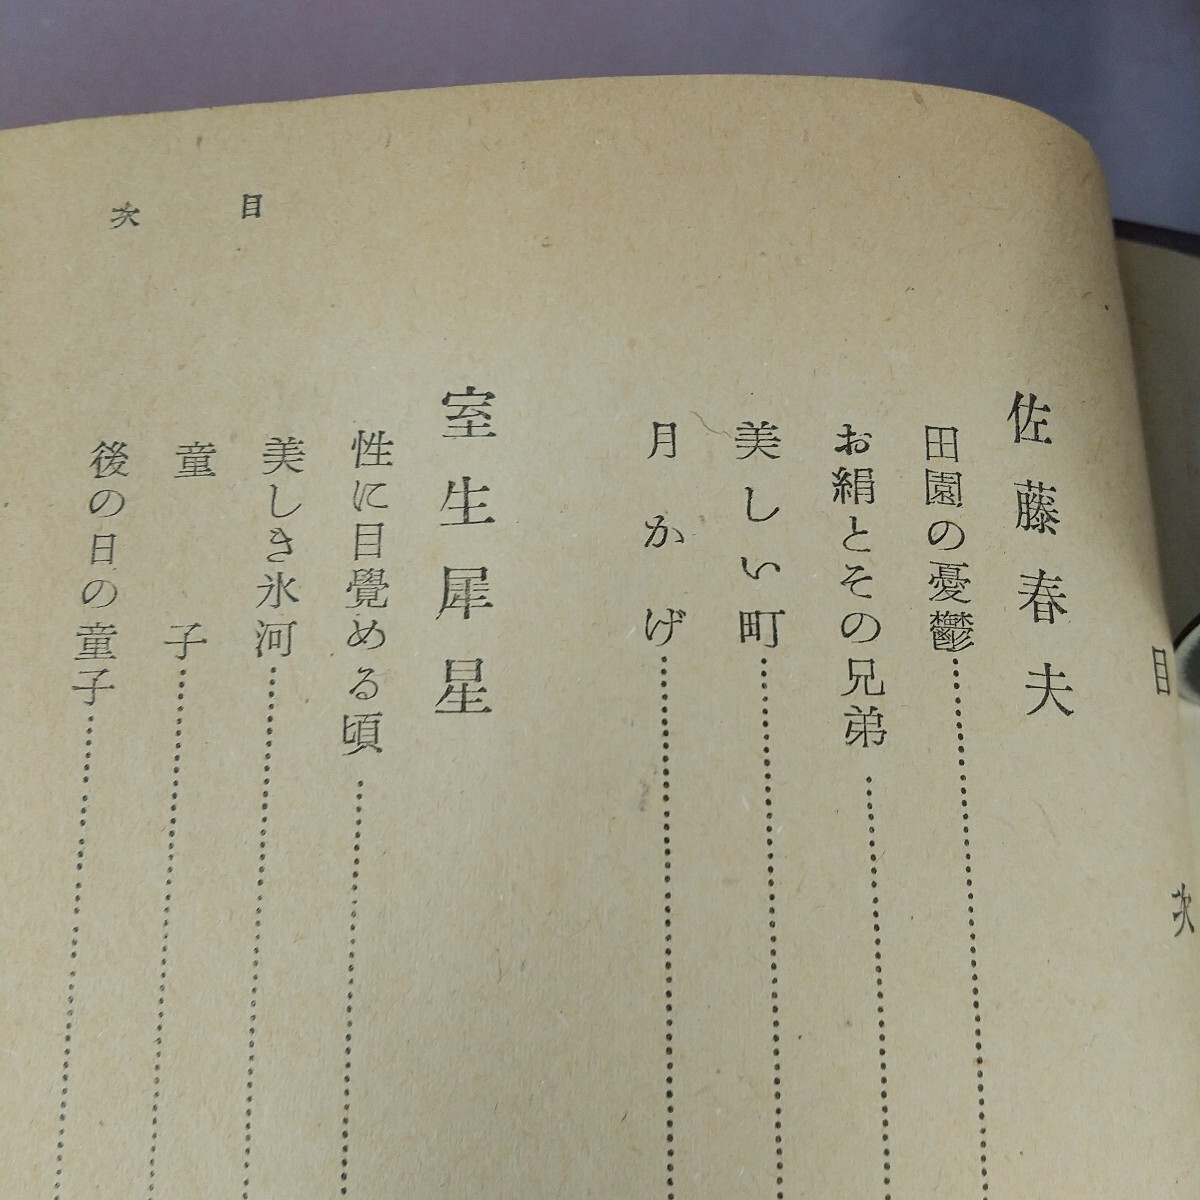 目次
目次
佐藤春夫
田園の憂鬱
お絹とその兄弟
美しい町
月かげ
室生犀星
性に目覺める頃
美しき氷河
童子
後の日の童子